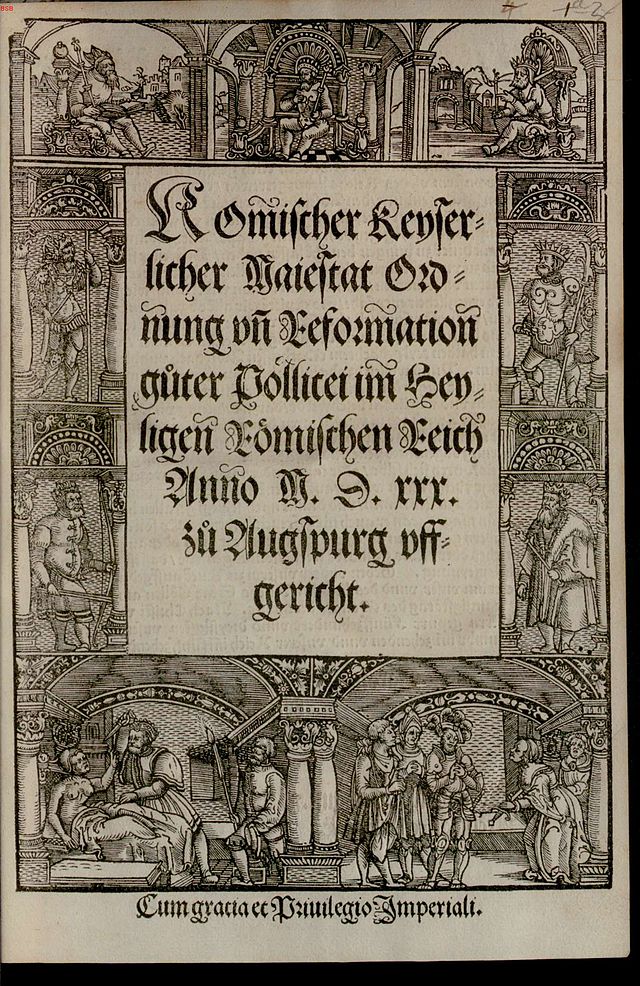 BSB
Rőm̃ischer Keyser⸗
licher Maiestat Ord⸗
ñung vñ Reform̃atioñ
gůter Pöllicei im̃ Hey⸗
ligeñ Römischen Reich
Añno M. D. xxx.
zů Augspurg vff⸗
gericht.
Cum gratia et Priuilegio Imperiali.